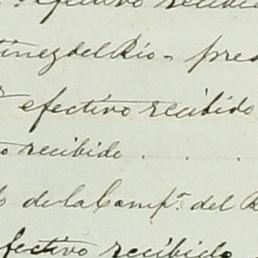 efectivo recibido
tinez del Rio - pres
efectivo recibido
o recibido . . .
o de la Campª. del R
fectivo recibido